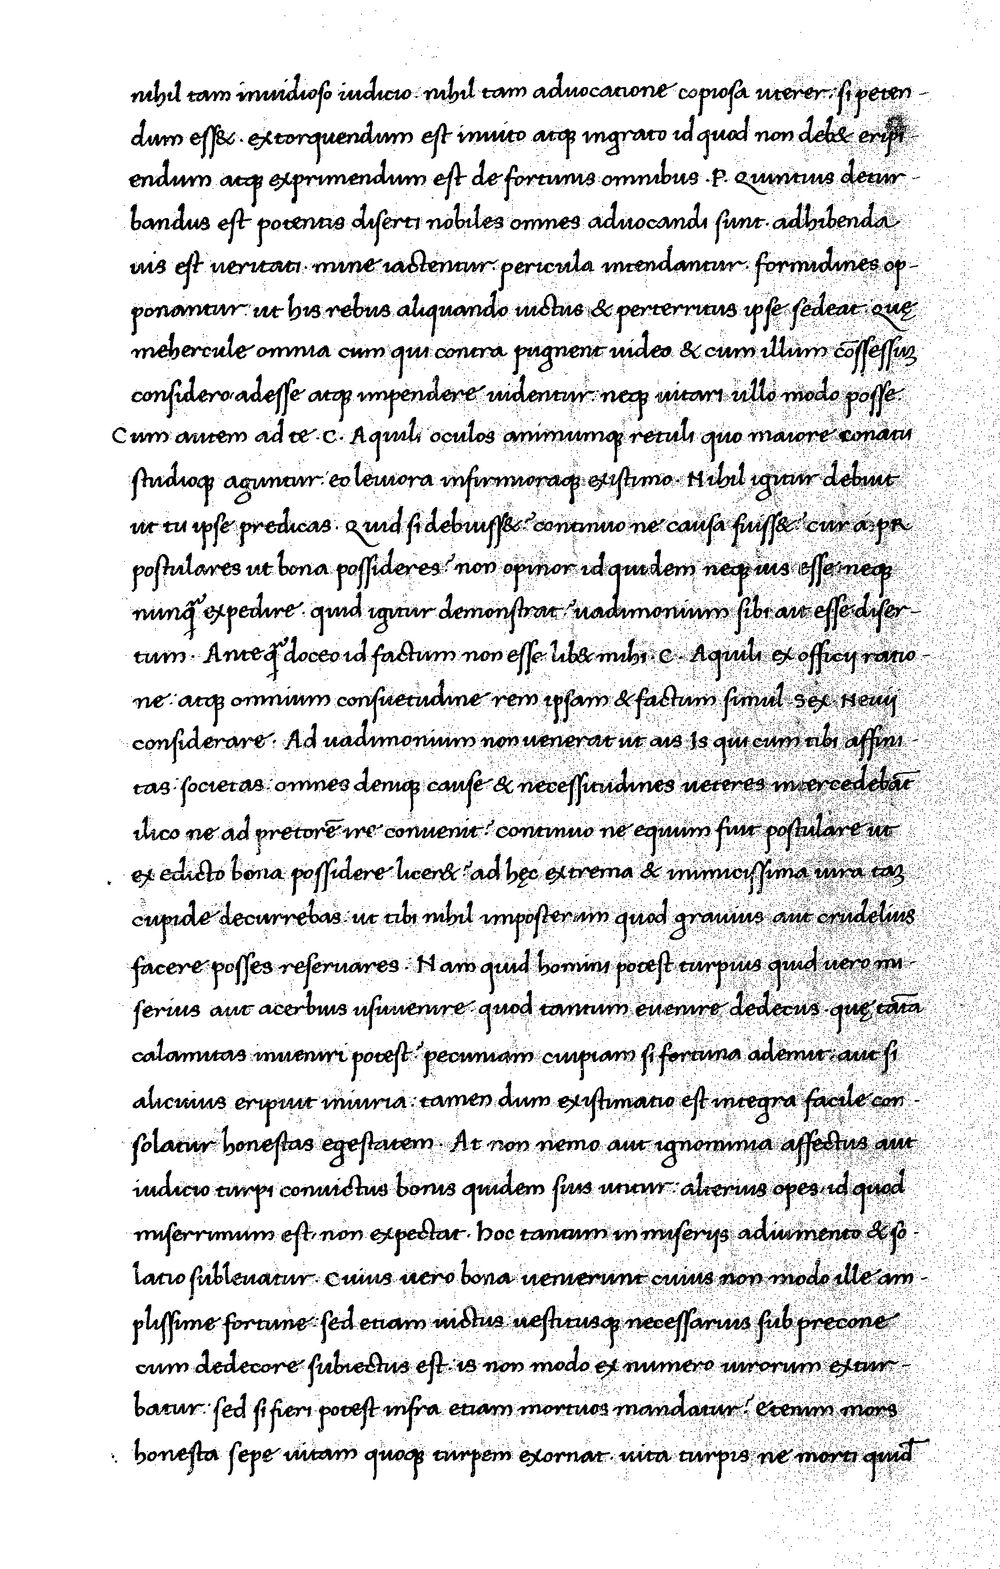 nihil tam inuidioso iudicio. nihil tam aduocatione copiosa uterer. si peten-
dum ess&. extorquendum est inuito atq; ingrato id quod non deb& eripi
endum atq; exprimendum est de fortunis omnibus .P. Quintius detur
bandus est potentis diserti nobiles omnes aduocandi sunt. adhibenda
uis est ueritati. mine iactentur. pericula intendantur. formidines op-
ponantur. ut his rebus aliquando uictus & perterritus ipse sedeat. Quę
mehercule omnia cum qui contra pugnent uideo & cum illum cōssessuꝫ
considero adesse atq; impendere uidentur. neq; uitari ullo modo posse.
Cum autem ad te .C. Aquili oculos animumq; retuli quo maiore conatu
studioq; aguntur. eo leuiora infirmioraq; existimo. Nihil igitur debuit
ut tu ipse predicas. Quid si debuiss&? continuo ne causa fuiss&? cur a .PR.
postulares ut bona possideres? non opinor id quidem neq; ius esse neq;
nunq̃ expedire. quid igitur demonstrat? uadimonium sibi ait esse diser-
tum. Anteq̃ doceo id factum non esse. lib& mihi .C. Aquili ex officij ratio-
ne. atq; omnium consuetudine rem ipsam & factum simul Sex. Neuij
considerare. Ad uadimonium non uenerat ut ais Is qui cum tibi affini-
tas. societas. omnes deniq; cause & necessitudines ueteres intercedebāt
ilico ne ad pretorē ire conuenit? continuo ne equum fuit postulare ut
ex edicto bona possidere licer&? ad hęc extrema & inimicissima iura taꝫ
cupide decurrebas. ut tibi nihil imposterum quod grauius aut crudelius
facere posses reseruares. Nam quid homini potest turpius quid uero mi-
serius aut acerbius usuuenire. quod tantum euenire dedecus. quę tāta
calamitas inueniri potest? pecuniam cuipiam si fortuna ademit. aut si
alicuius eripuit iniuria. tamen dum existimatio est integra facile con-
solatur honestas egestatem. At non nemo aut ignominia affectus aut
iudicio turpi conuictus bonis quidem suis utitur. alterius opes. id quod
miserrimum est. non expectat. hoc tantum in miserijs adiumento & so-
latio subleuatur. Cuius uero bona uenierunt cuius non modo ille am-
plissime fortune. sed etiam uictus uestitusq; necessarius sub precone
cum dedecore subiectus est. is non modo ex numero uirorum extur-
batur. sed si fieri potest infra etiam mortuos mandatur? etenim mors
honesta sepe uitam quoq; turpem exornat. uita turpis ne morti quid̄